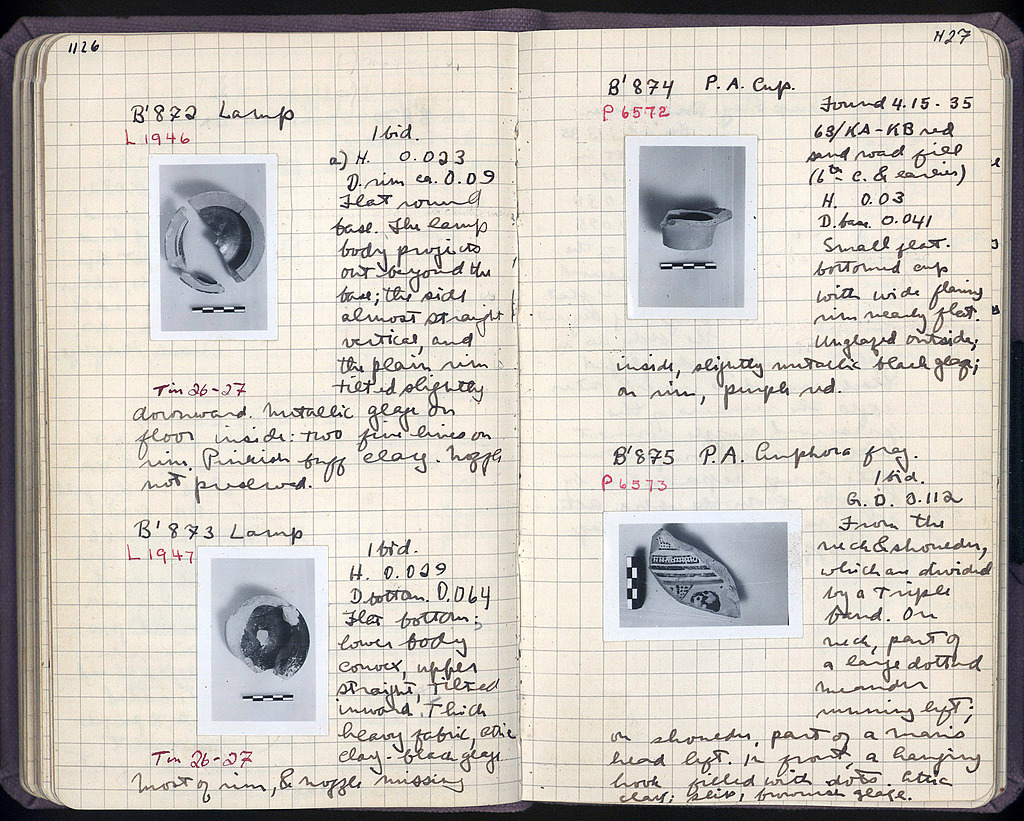 1126
B'872 Lamp
L 1946
Ibid.
a) H. 0.023
D. rim ca. 0.09
Flat round
base. The lamp
body projects
out beyond the
base; the side
almost straight
vertical, and
the plain rim
tilted slightly
Tin 26-27
downward. Metallic glaze on
floor inside: two fine lines on
rim. Pinkish buff clay. Nozzle
not preserved.
B'873 Lamp
L 1947
Ibid.
H. 0.029
D. bottom. 0.064
Flat bottom;
lower body
convex, upper
straight, tilted
inward. Thick
heavy fabric, attic
clay - black glaze
Tin 26-27
Most of rim, & nozzle missing
1127
B'874 P.A. Cup.
P 6572
Found 4.15.35
63/KA-KB red
sand road fill
(6th c. & earlier)
H. 0.03
D. base. 0.041
Small flat-
bottomed cup
with wide flaring
rim nearly flat.
Unglazed outside;
inside, slightly metallic black glaze;
on rim, purple red.
B'875 P.A. Amphora frag.
P 6573
Ibid.
G.D. 0.112
From the
neck & shoulder,
which are divided
by a triple
band. On
neck, part of
a large dotted
meander
running left;
on shoulder, part of a man's
head left. In front, a hanging
hook filled with dots. Attic
clay; slip; brownish glaze.